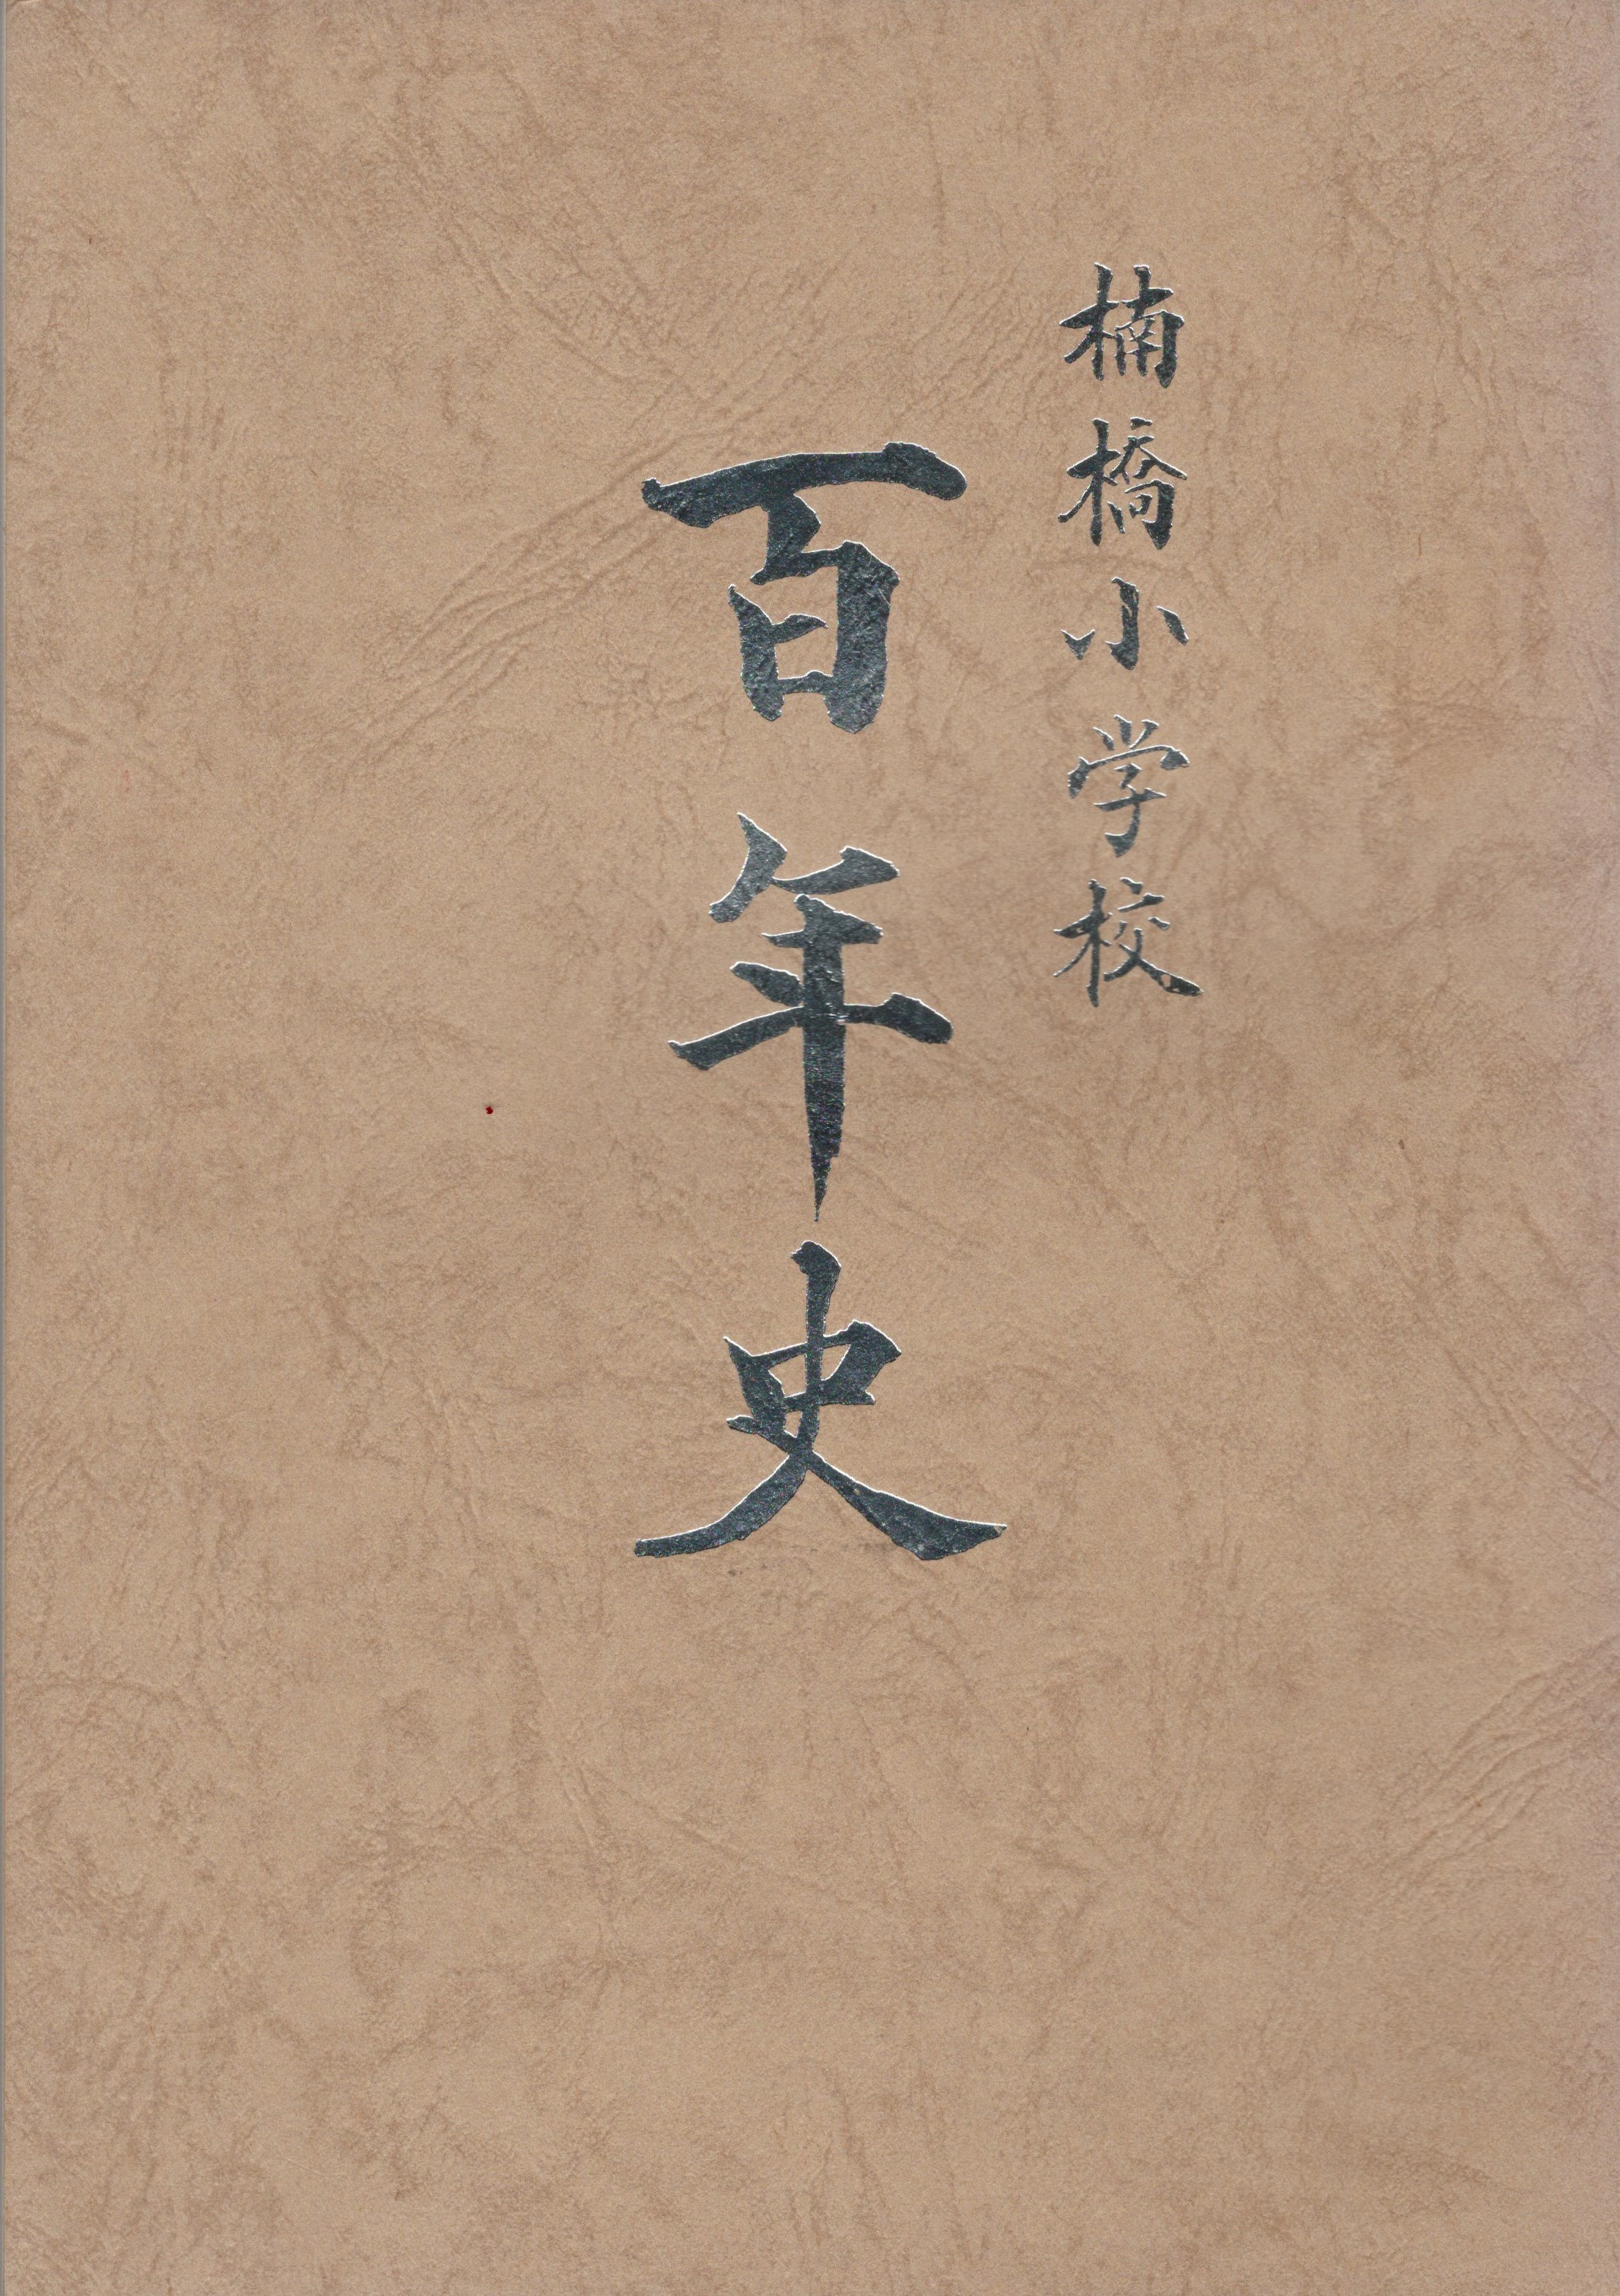 楠橋小学校
百年史